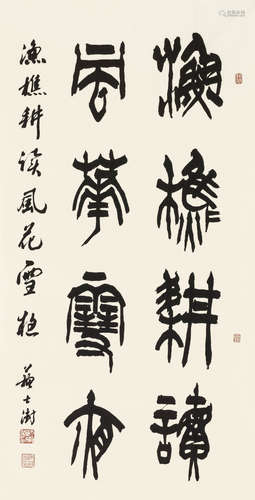 漁樵耕讀
風華雪夜
漁樵耕讀風花雪夜 蘇士澍